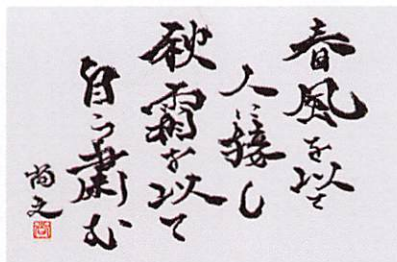 春風を以て
人に接し
秋霜を以て
自ら粛む
尚文